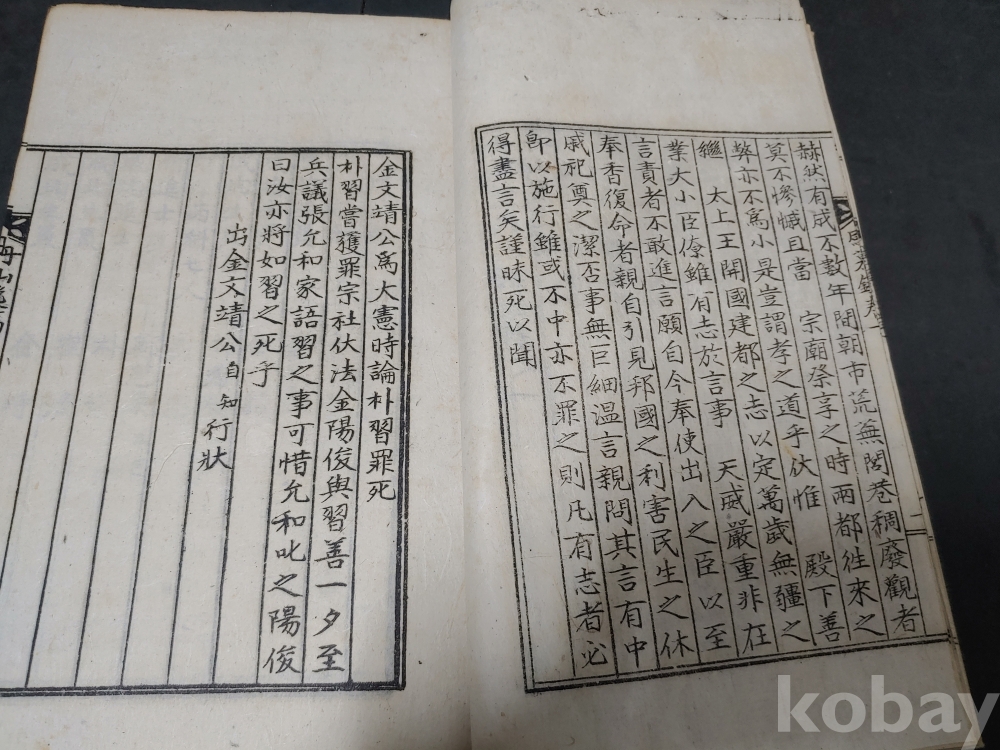 赫然有成不數年間朝市荒蕪閭巷稠廢觀者
莫不慘慽且當 宗廟祭享之時兩都往來之
弊亦不爲小是豈謂孝之道乎伏惟 殿下善
繼 太上王開國建都之志以定萬歲無疆之
業大小臣僚雖有志於言事 天威嚴重非在
言責者不敢進言願自今奉使出入之臣以至
奉香復命者親自引見邦國之利害民生之休
戚祀奠之潔否事無巨細溫言親問其言有中
卽以施行雖或不中亦不罪之則凡有志者必
得盡言矣謹昧死以聞
金文靖公爲大憲時論朴習罪死
朴習嘗獲罪宗社伏法金陽俊與習善一夕至
兵議張允和家語習之事可惜允和叱之陽俊
曰汝亦將如習之死乎
出金文靖公自知行狀
kobay